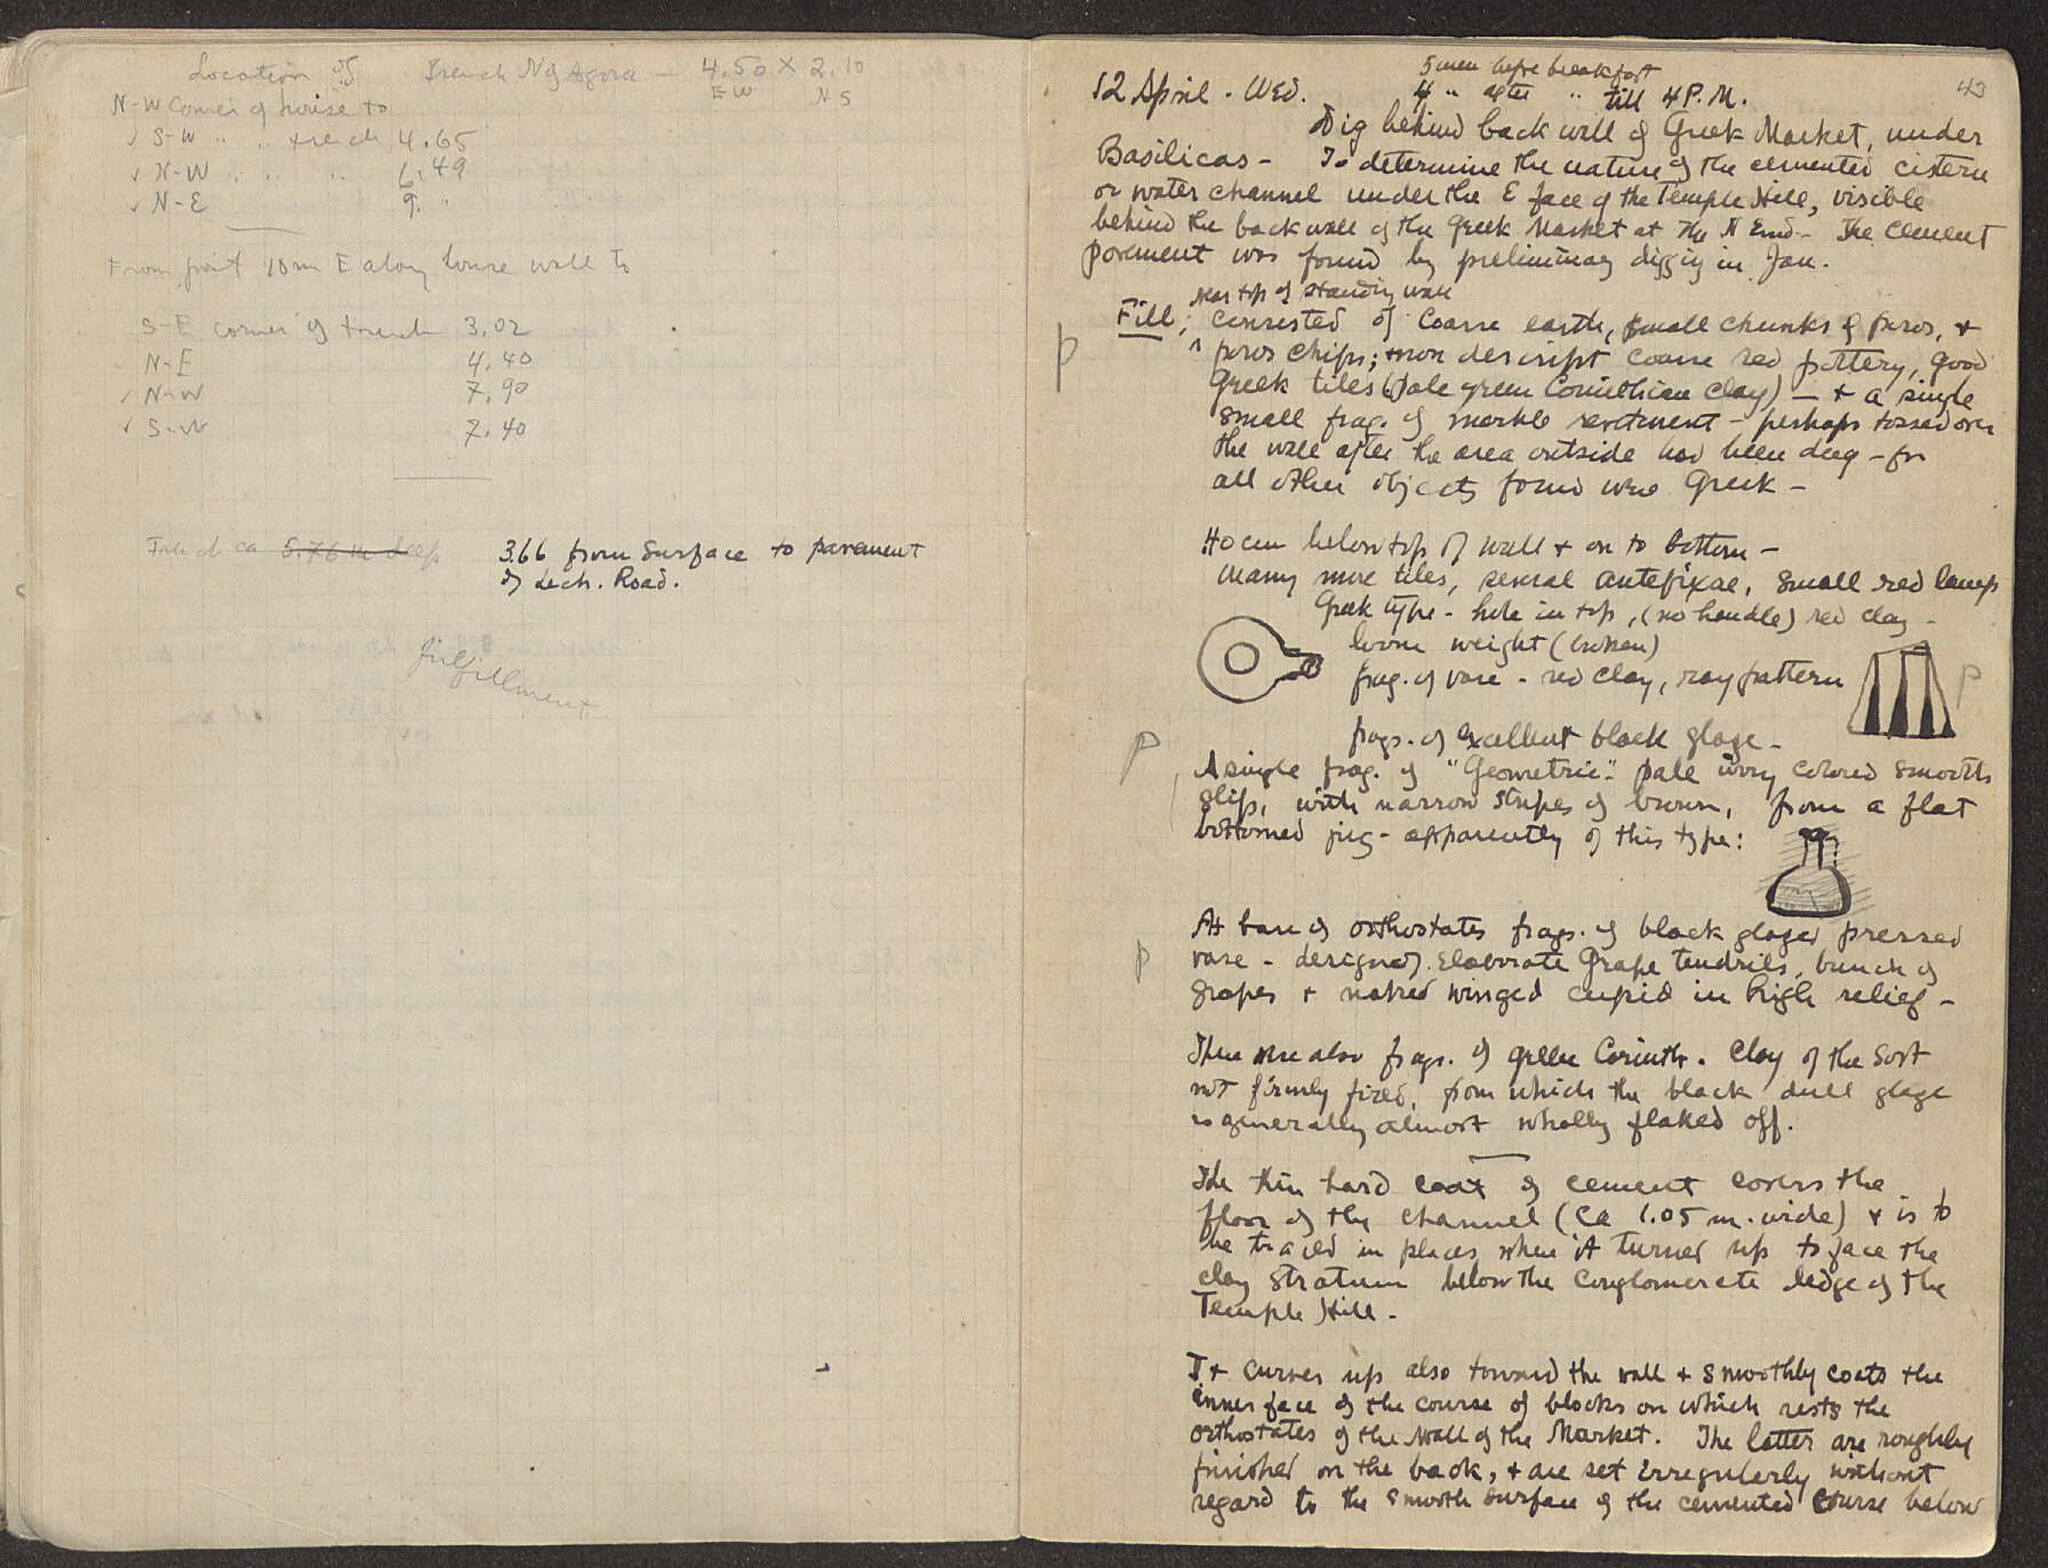 Location of Trench N of Agora — 4.50 X 2.10
E W N S
N-W Corner of house to
✓ S-W " " trench 4.65
✓ N-W " " " 6.49
✓ N-E 9. "
From point 10m E along house wall to
S-E corner of trench 3.02
N-E 4.40
✓ N-W 7.90
✓ S-W 7.40
Trench ca 5.76 m deep 3.66 from surface to pavement
of Lech. Road.
fulfillment
43
5 men before breakfast
12 April . Wed. 4 " after " till 4 P.M.
Dig behind back wall of Greek Market, under
Basilicas - To determine the nature of the cemented cistern
or water channel under the E face of the Temple Hill, visible
behind the back wall of the Greek Market at the N End - The cement
pavement was found by preliminary digging in Jan.
near top of standing wall
Fill; consisted of coarse earth, small chunks of poros, +
p poros chips; + non descript coarse red pottery, good
Greek tiles (pale green Corinthian clay) — + a single
small frag. of marble revetment - perhaps tossed over
the wall after the area outside had been dug - for
all other objects found were Greek -
40 cm below top of wall + on to bottom -
many more tiles, several antefixae, small red lamps
Greek type - hole in top, (no handle) red clay -
loom weight (broken)
frag. of vase - red clay, ray pattern p
frags. of excellent black glaze -
p A single frag. of "Geometric" - pale ivory colored smooth
slip, with narrow stripes of brown, from a flat
bottomed jug - apparently of this type:
At base of orthostates frags. of black glazed pressed
p vase - design of elaborate Grape tendrils, bunch of
grapes + naked winged cupid in high relief -
There are also frags. of green Corinth. clay of the sort
not firmly fired, from which the black dull glaze
is generally almost wholly flaked off.
The thin hard coat of cement covers the
floor of the channel (ca 1.05 m. wide) + is to
be traced in places where it turned up to face the
clay stratum below the conglomerate ledge of the
Temple Hill -
It curves up also toward the wall + smoothly coats the
inner face of the course of blocks on which rests the
orthostates of the Wall of the Market. The latter are roughly
finished on the back, + are set irregularly without
regard to the smooth surface of the cemented course below